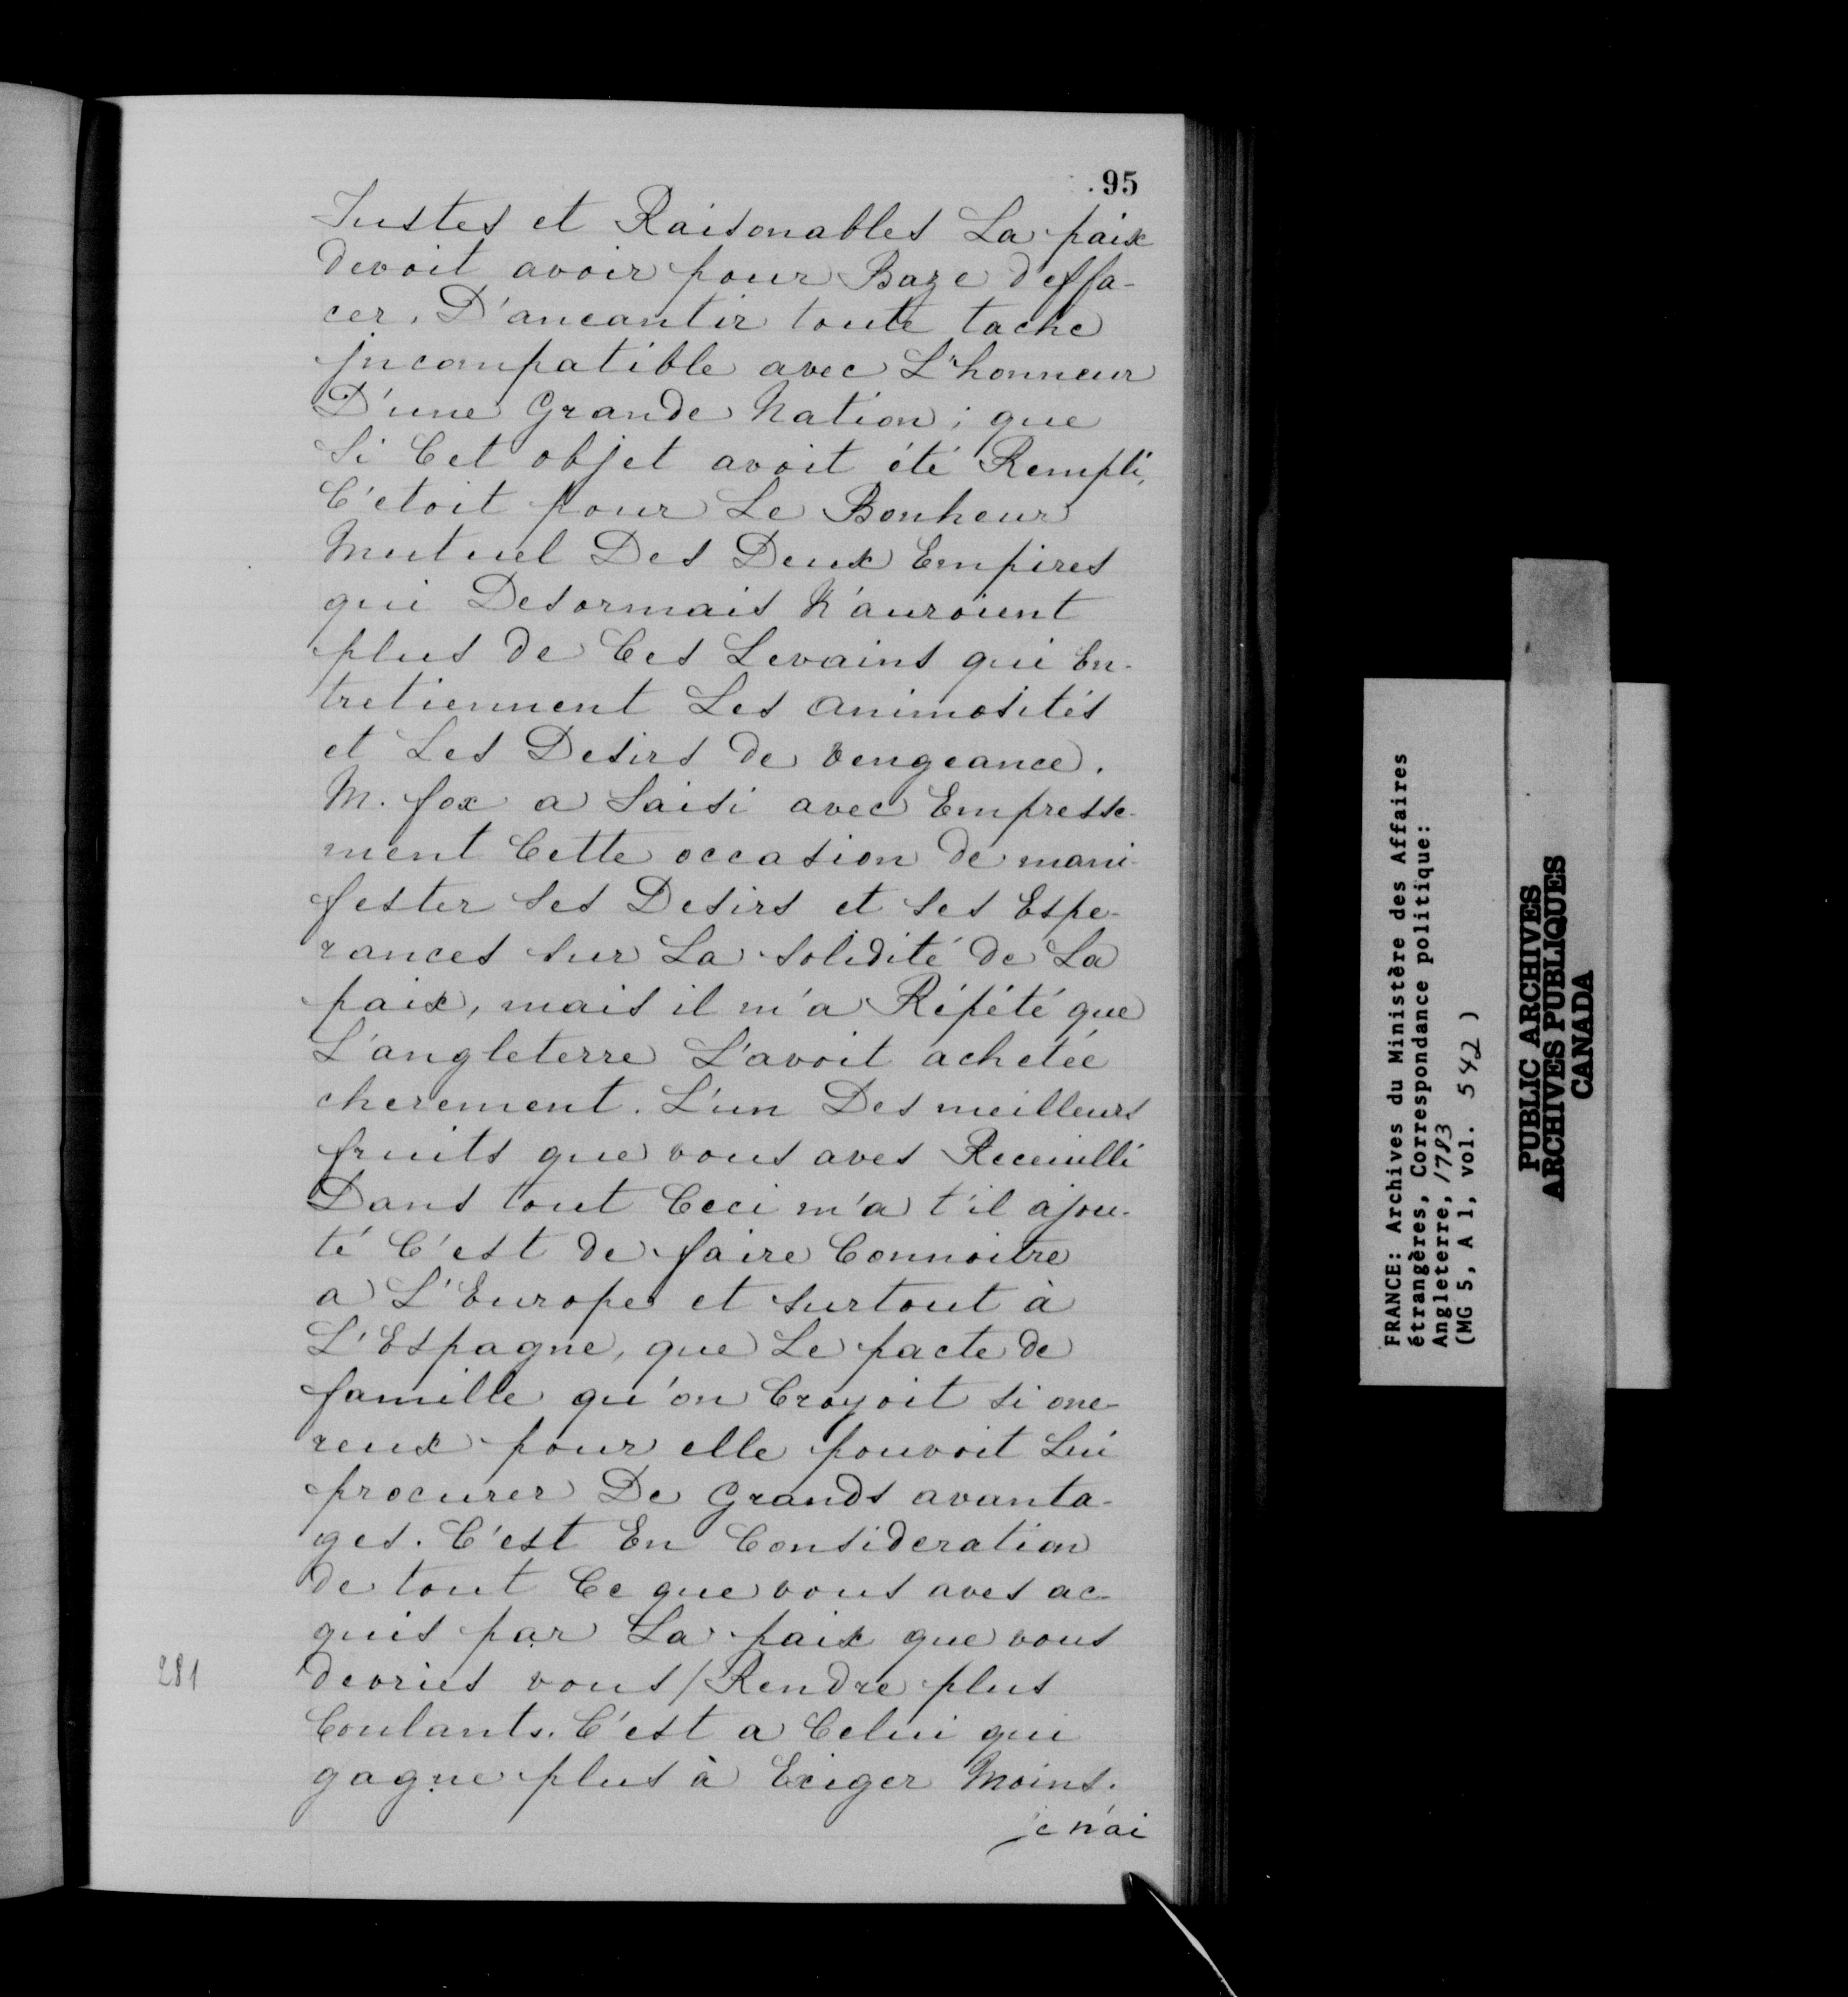 95
Justes et Raisonables La paix
devoit avoir pour Baze d'effa-
cer, D'aneantir toute tache
jncompatible avec L'honneur
D'une Grande Nation; que
Si Cet objet avoit été Rempli,
C'etoit pour Le Bonheur
Mutuel Des Deux Empires
qui Desormais N'auroient
plus de Ces Levains qui En-
tretiennent Les animosités
et Les Desirs de vengeance.
M. fox a Saisi avec Empresse-
ment Cette occasion de mani-
fester ses Desirs et ses Espe-
rances sur La solidité de La
paix, mais il m'a Répété que
L'angleterre L'avoit achetée
cherement. L'un Des meilleurs
fruits que vous aves Receuilli
Dans tout Ceci m'a t'il ajou-
té C'est de faire Connoitre
a L'Europe et surtout à
L'Espagne, que Le pacte de
famille qu'on Croyoit si one-
reux pour elle pouvoit Lui
procurer De Grands avanta-
ges. C'est En Consideration
de tout Ce que vous aves ac-
quis par La paix que vous
281 devries vous/Rendre plus
Coulants. C'est a Celui qui
gagne plus à Exiger Moins.
je n'ai
FRANCE: Archives du Ministère des Affaires
étrangères, Correspondance politique:
Angleterre, 1783
(MG 5, A 1, vol. 542 )
PUBLIC ARCHIVES
ARCHIVES PUBLIQUES
CANADA